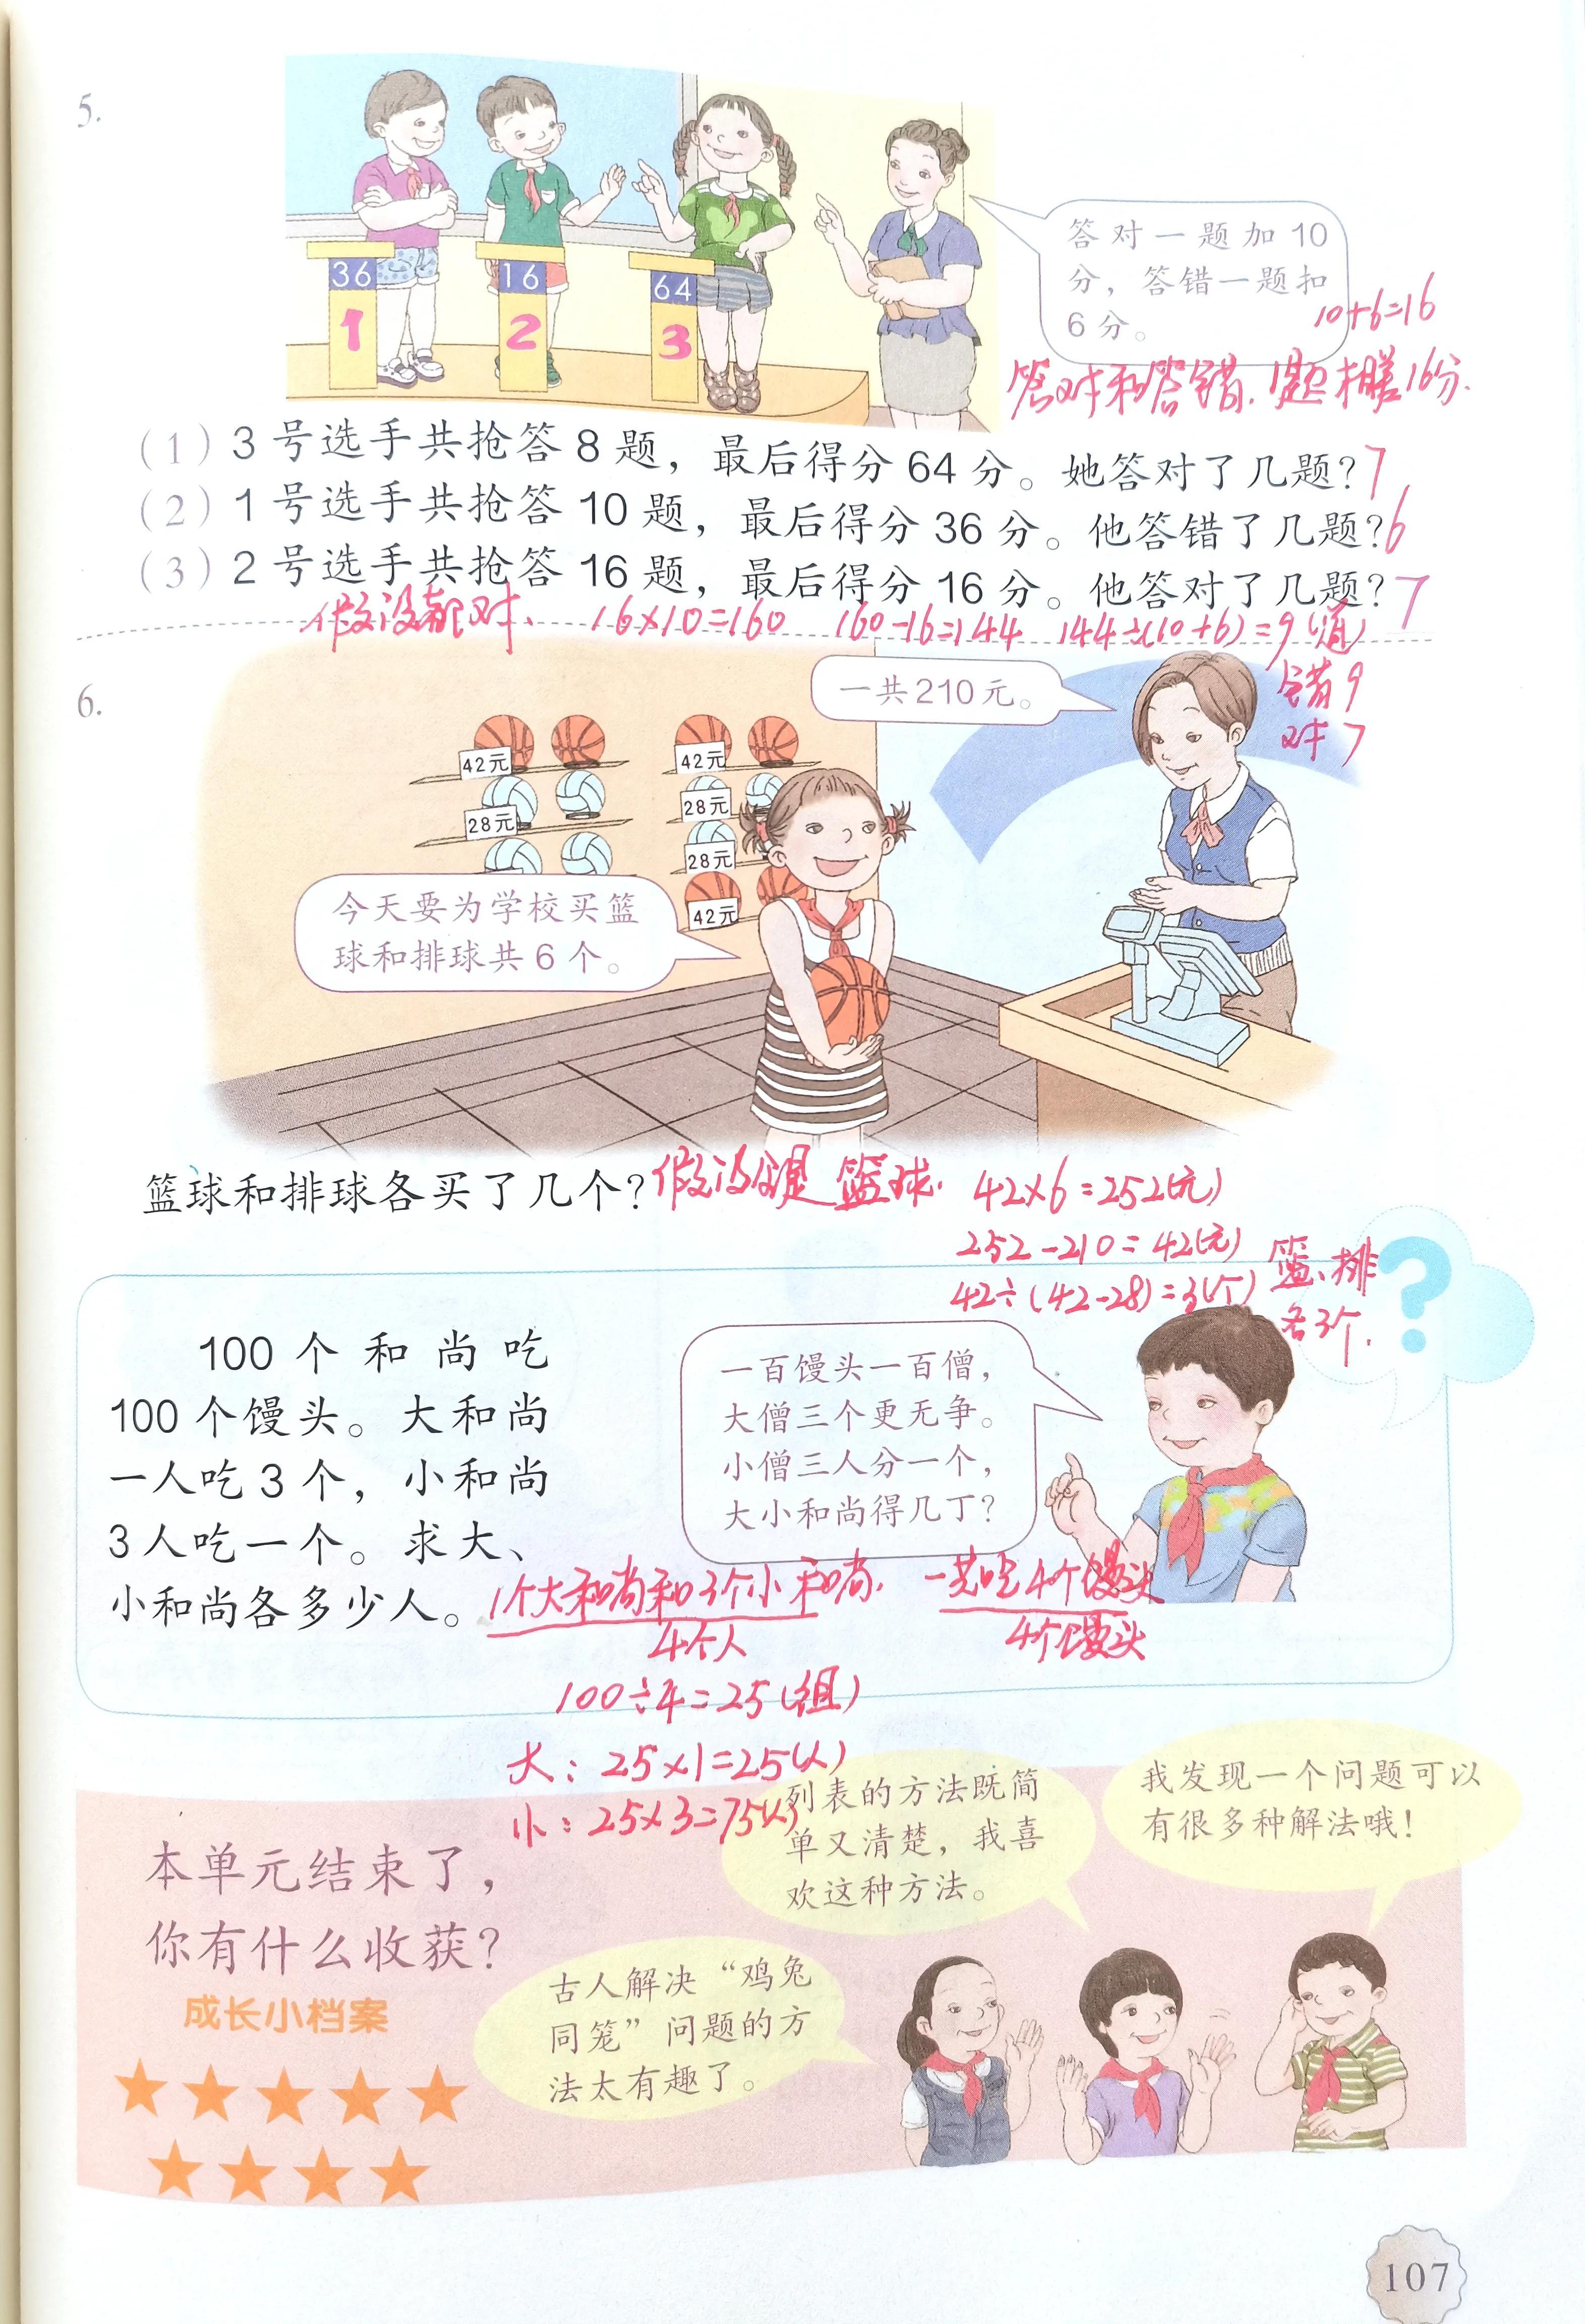 5.
36
16
64
1
2
3
答对一题加10
分，答错一题扣
6分。
10+6=16
答对和答错1题相差16分.
(1) 3号选手共抢答8题，最后得分64分。她答对了几题？7
(2) 1号选手共抢答10题，最后得分36分。他答错了几题？6
(3) 2号选手共抢答16题，最后得分16分。他答对了几题？7
假设都对、 16×10=160 160-16=144 144÷(10+6)=9(道)
错9
对7
6.
一共210元。
42元
42元
28元
28元
28元
42元
今天要为学校买篮
球和排球共6个。
篮球和排球各买了几个？假设全是篮球. 42×6=252(元)
252-210=42(元)
42÷(42-28)=3(个)
篮、排
各3个.
?
100个和尚吃
100个馒头。大和尚
一人吃3个，小和尚
3人吃一个。求大、
小和尚各多少人。
一百馒头一百僧，
大僧三个更无争。
小僧三人分一个，
大小和尚得几丁？
1个大和尚和3个小和尚. 一共吃4个馒头
4个人 4个馒头
100÷4=25(组)
大：25×1=25(人)
小：25×3=75(人)
列表的方法既简
单又清楚，我喜
欢这种方法。
我发现一个问题可以
有很多种解法哦！
本单元结束了，
你有什么收获？
成长小档案
古人解决“鸡兔
同笼”问题的方
法太有趣了。
107